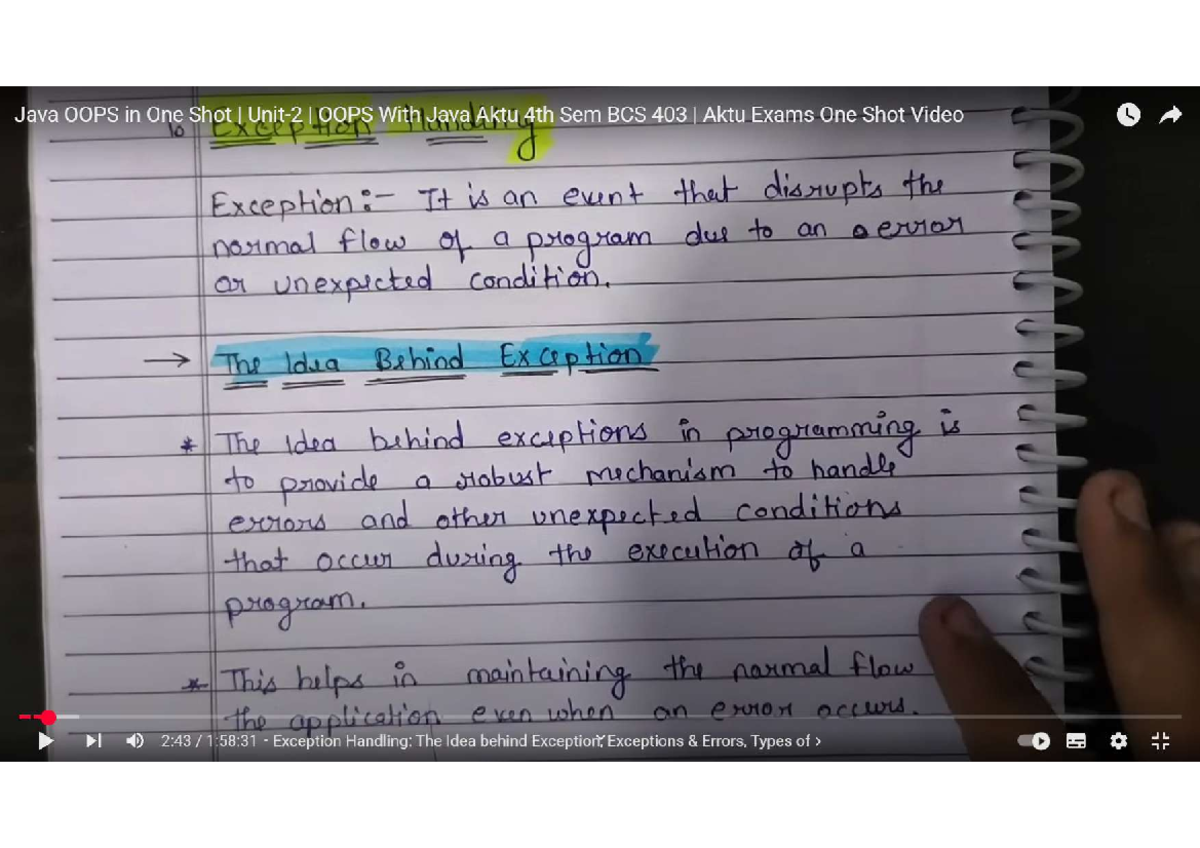 Java OOPS in One Shot | Unit-2 | OOPS With Java Aktu 4th Sem BCS 403 | Aktu Exams One Shot Video
10 Exception Handling
Exception:- It is an event that disrupts the
normal flow of a program due to an error
or unexpected condition.
→ The Idea Behind Exception
* The Idea behind exceptions in programming is
to provide a robust mechanism to handle
errors and other unexpected conditions
that occur during the execution of a
program.
* This helps in maintaining the normal flow
the application even when an error occurs.
2:43 / 1:58:31 • Exception Handling: The Idea behind Exception, Exceptions & Errors, Types of >